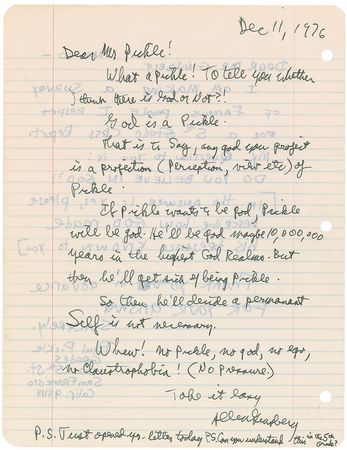 Dec 11, 1976
Dear Mr Pickle!
What a Pickle! To tell you whether
I think there is God or Not?!
God is a Pickle.
That is to Say, any god you project
is a projection (Perception, etc) of
Pickle.
If Pickle wants to be god, Pickle
will be god. He'll be god maybe 10,000,000
years in the highest God Realms. But
then he'll get sick of being Pickle.
So then he'll decide a permanant
Self is not necessary.
Whew! No Pickle, no god, no ego,
no Claustrophobia! (No Pressure.)
Take it easy
Allen Ginsberg
P.S. Just opened yr letter today P.S. Can you understand this in the 5th
Grade?